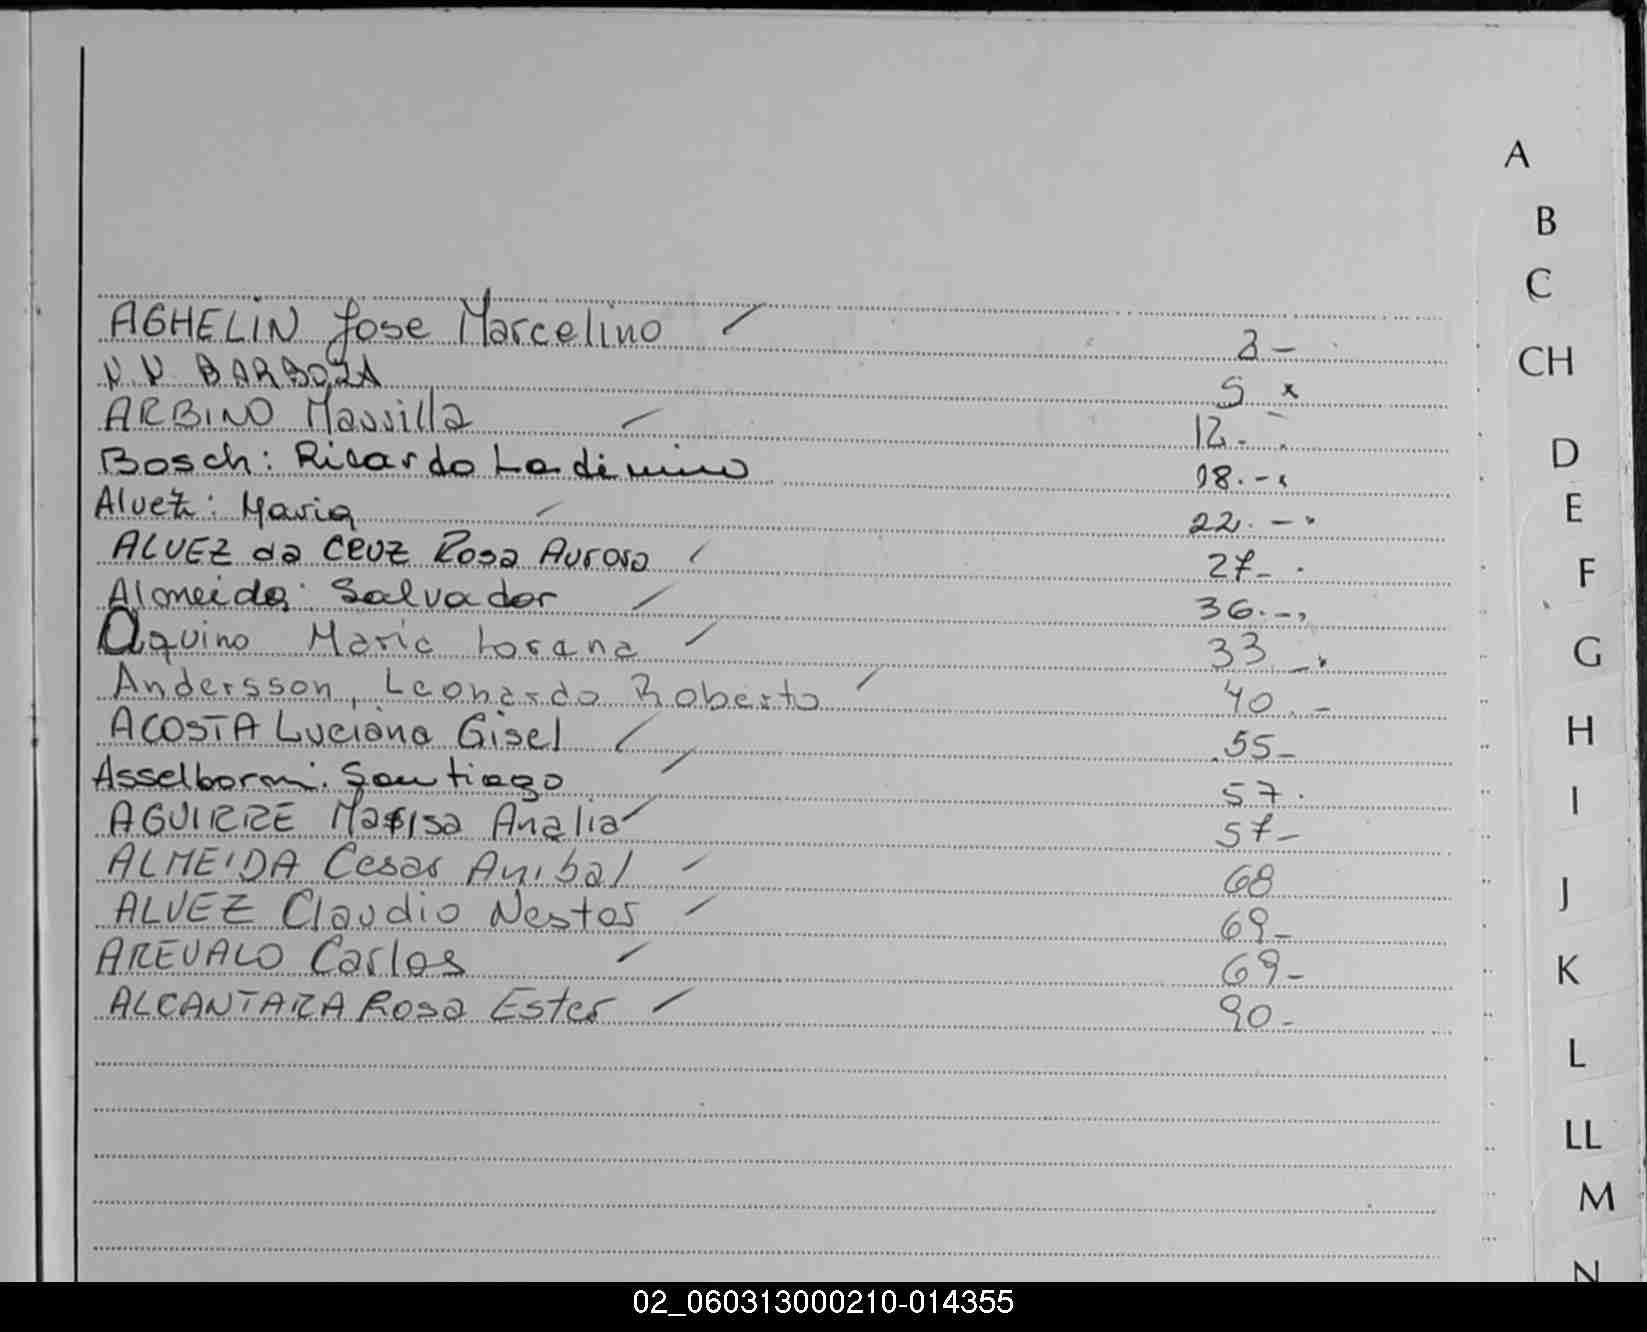 AGHELIN Jose Marcelino / 3 -
N.N BARBOZA 5 x
ARBINO Massilla / 12. -
Bosch: Ricardo Ladimiro 18. -
Alvez: Maria / 22. -
ALVEZ da CRUZ Rosa Aurora / 27 -
Almeida: Salvador / 36. -
Aquino Maria Lorena / 33 -
Andersson, Leonardo Roberto / 40. -
ACOSTA Luciana Gisel / 55 -
Asselborn: Santiago / 57.
AGUIRRE Marisa Analia / 57 -
ALMEIDA Cesar Anibal / 68
ALVEZ Claudio Nestor / 69 -
AREVALO Carlos / 69 -
ALCANTARA Rosa Ester / 90 -
A
B
C
CH
D
E
F
G
H
I
J
K
L
LL
M
N
02_060313000210-014355